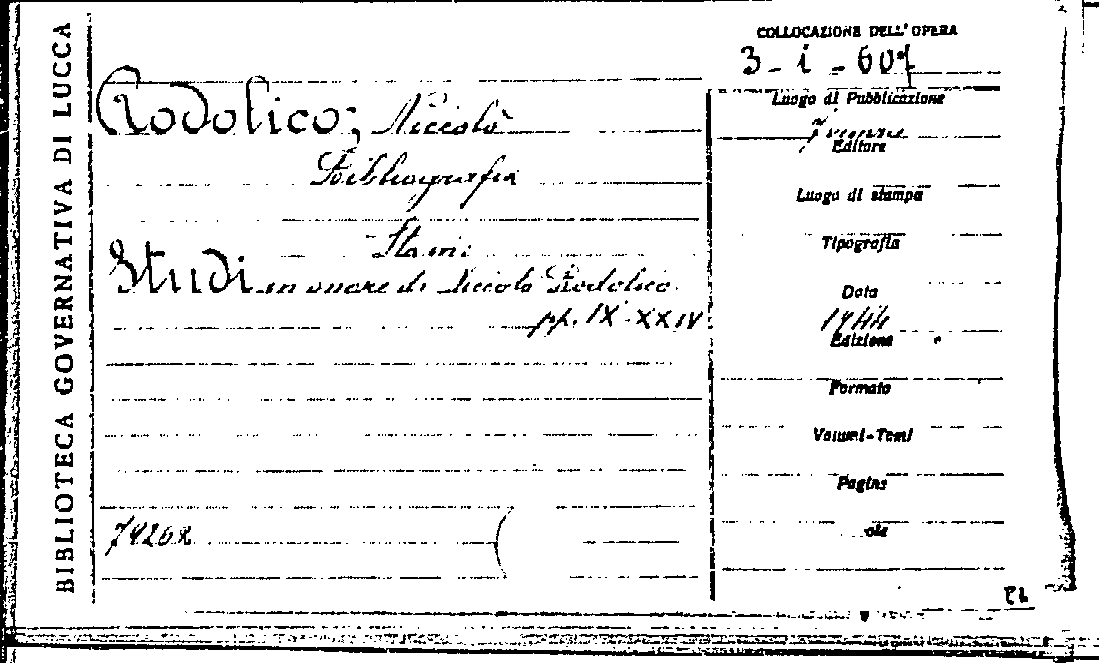 BIBLIOTECA GOVERNATIVA DI LUCCA
Rodolico, Niccolò
Bibliografia
Sta in:
Studi in onore di Niccolò Rodolico
pp. IX-XXIV
74262
COLLOCAZIONE DELL'OPERA
3-i-607
Luogo di Pubblicazione
Firenze
Editore
Luogo di stampa
Tipografia
Data
1944
Edizione
Formato
Volumi-Tomi
Pagine